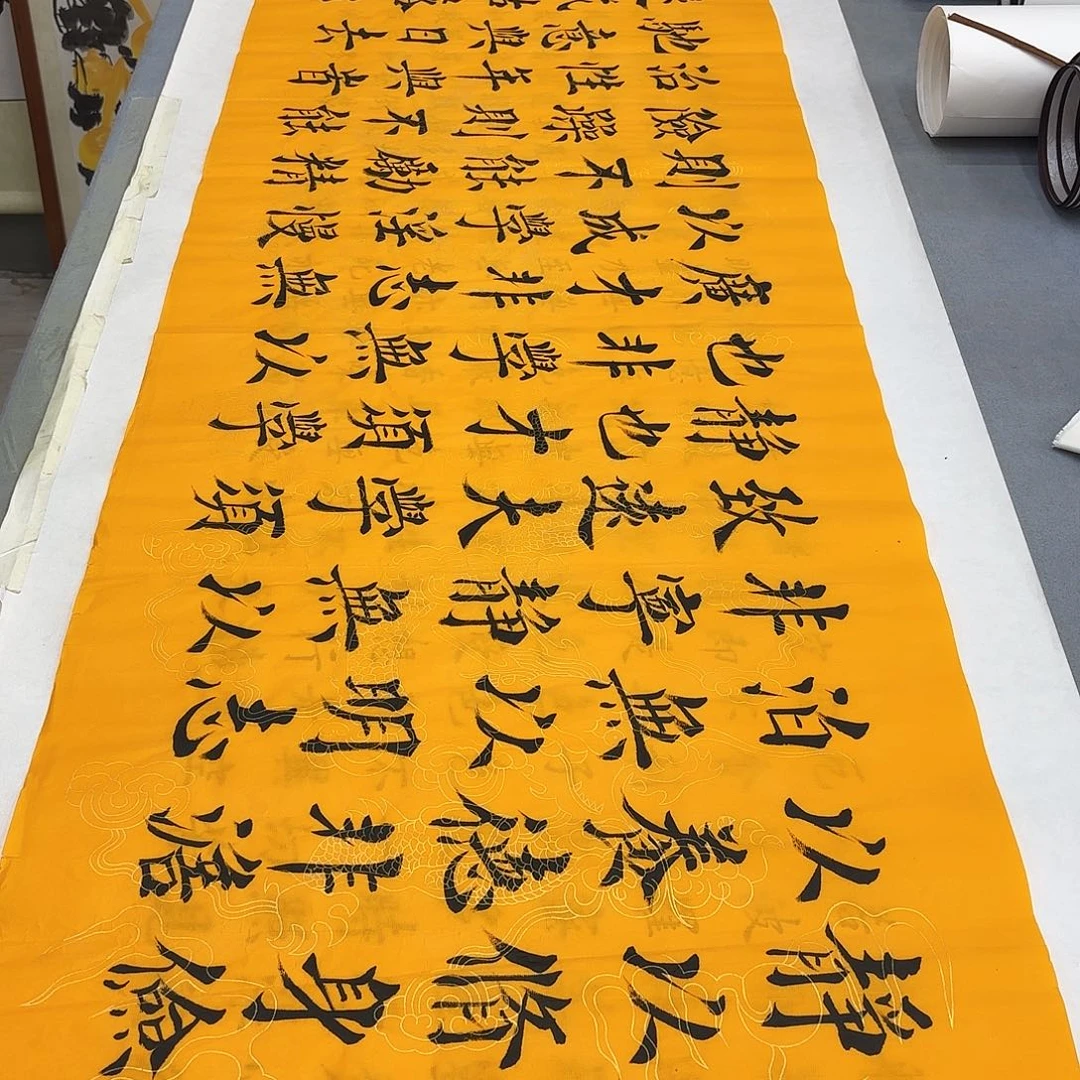 靜以修身儉
以養德非澹
泊無以明志
非寧靜無以
致遠夫學須
靜也才須學
也非學無以
廣才非志無
以成學淫慢
則不能勵精
險躁則不能
治性年與旹
馳意與日去